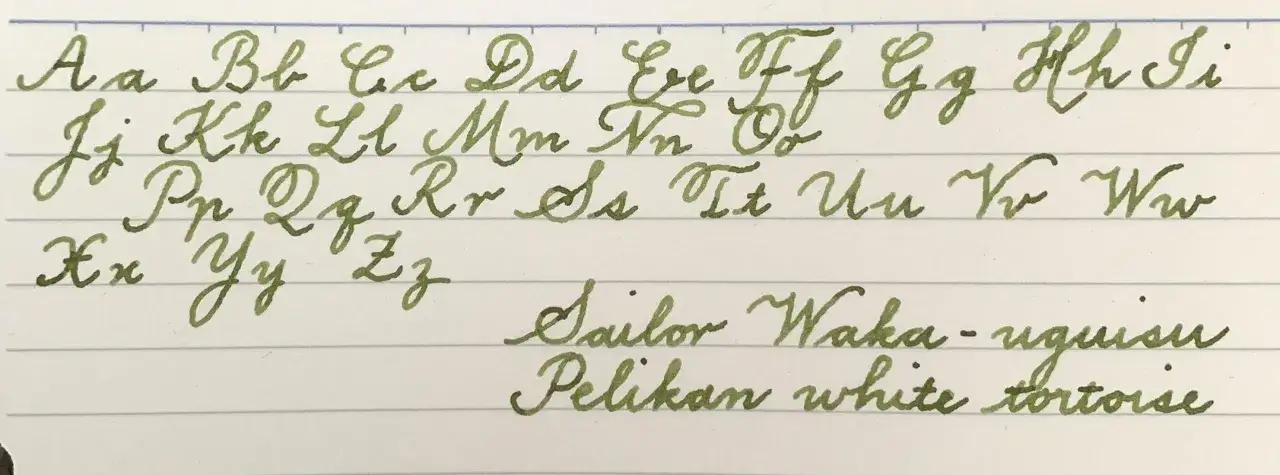 Aa Bb Cc Dd Ee Ff Gg Hh Ii
Jj Kk Ll Mm Nn Oo
Pp Qq Rr Ss Tt Uu Vv Ww
Xx Yy Zz
Sailor Waka-uguisu
Pelikan white tortoise